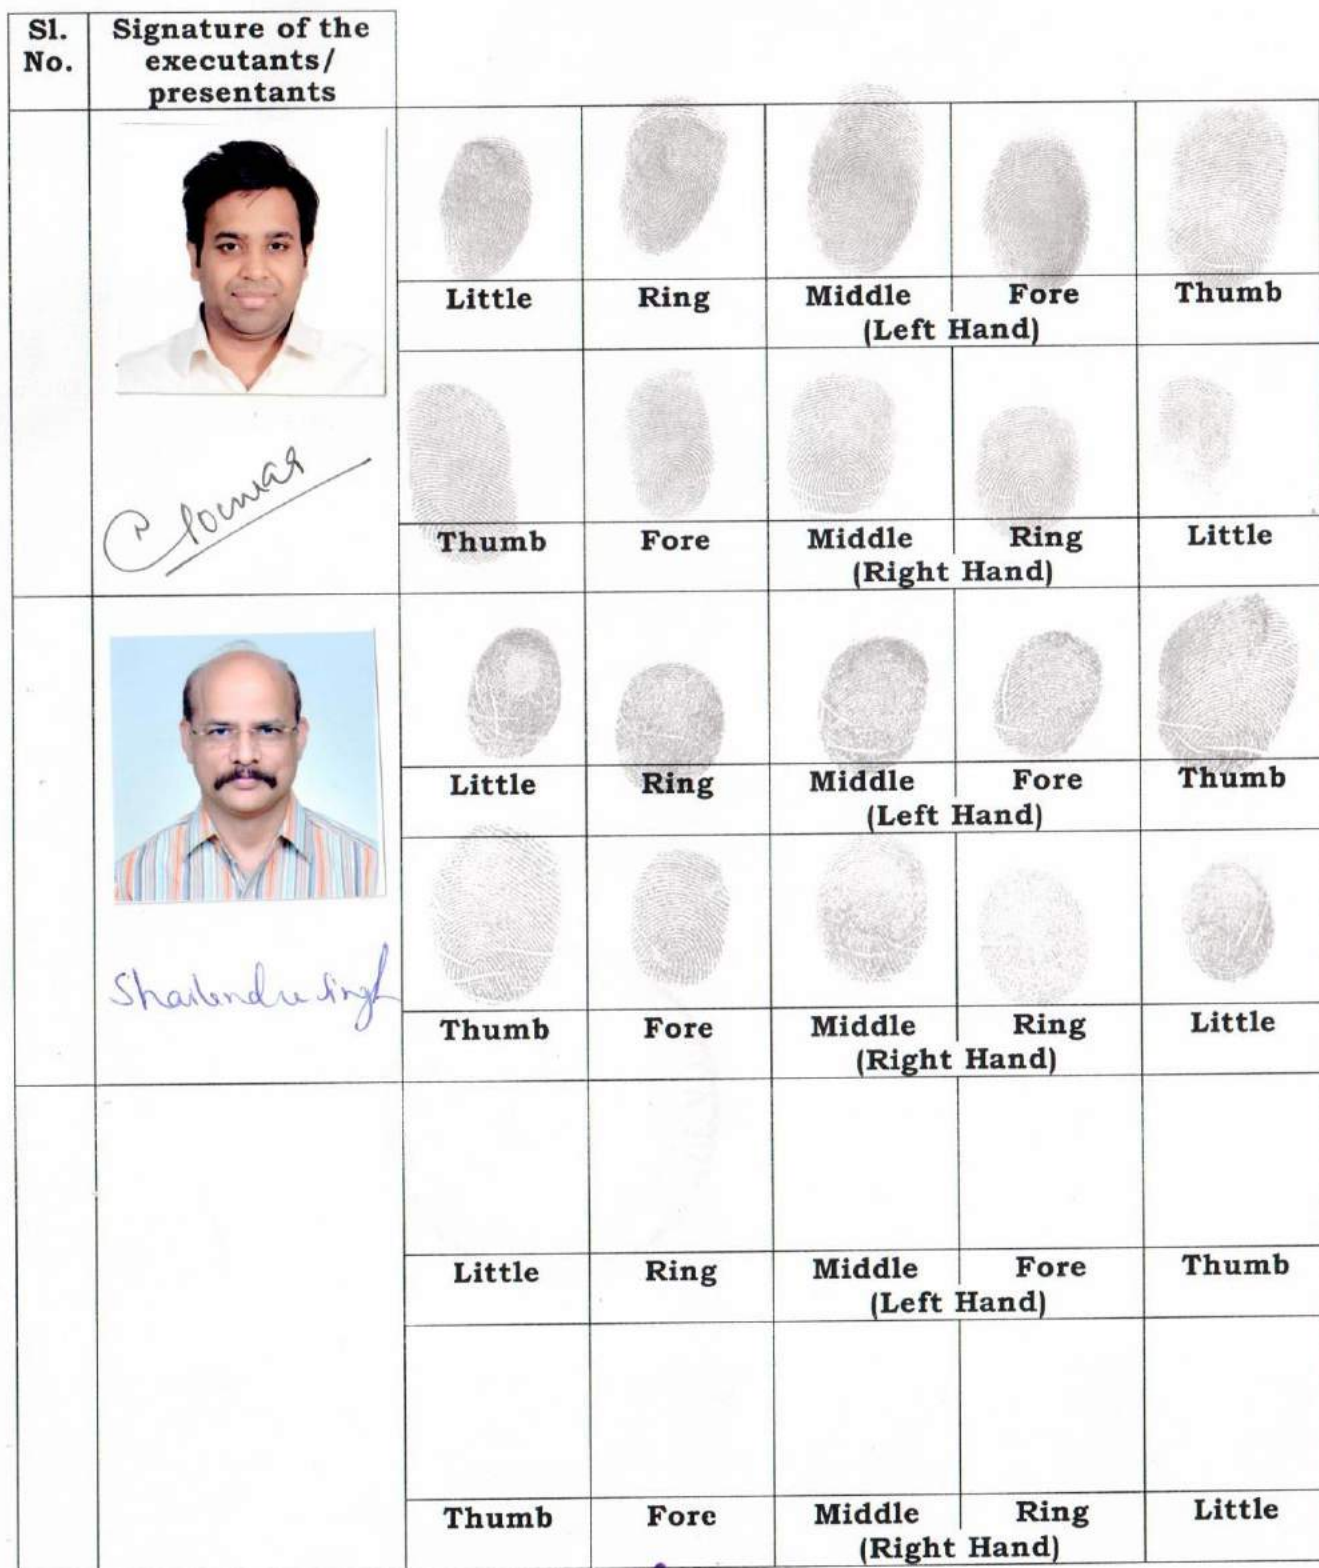 Sl. No.
Signature of the executants/ presentants
Little Ring Middle Fore Thumb
(Left Hand)
Thumb Fore Middle Ring Little
(Right Hand)
Little Ring Middle Fore Thumb
(Left Hand)
Shailendra Singh
Thumb Fore Middle Ring Little
(Right Hand)
Little Ring Middle Fore Thumb
(Left Hand)
Thumb Fore Middle Ring Little
(Right Hand)